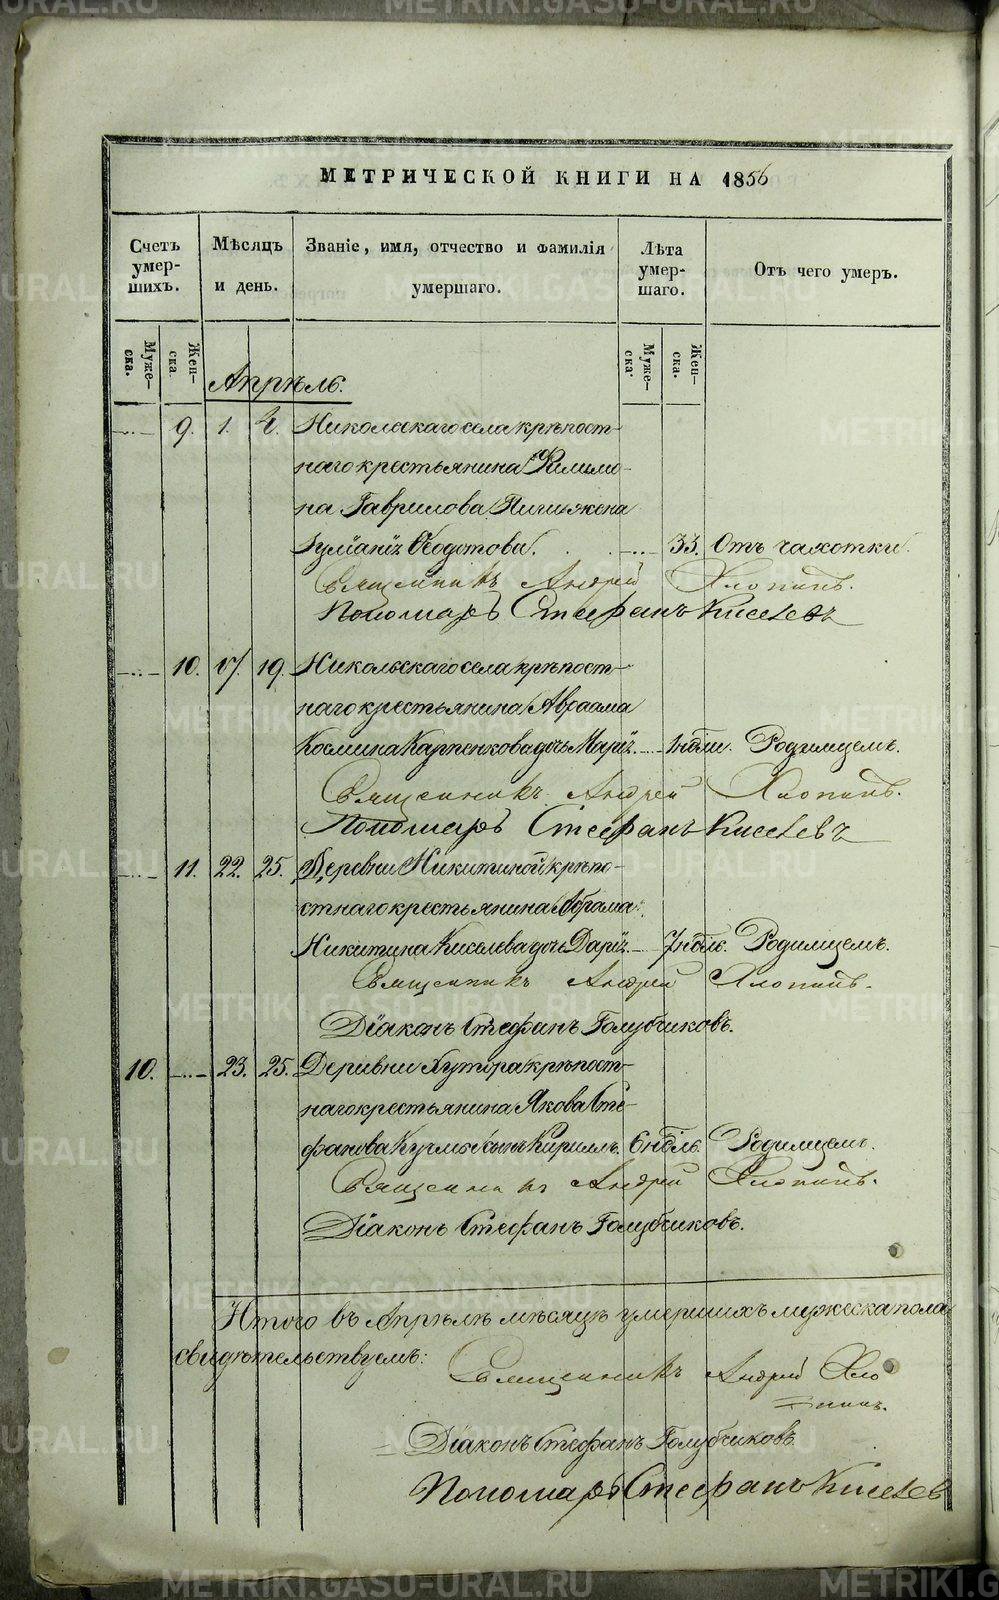 МЕТРИЧЕСКОЙ КНИГИ НА 1856
Счетъ умер-шихъ. Мѣсяцъ и день. Званіе, имя, отчество и фамилія умершаго. Лѣта умер-шаго. Отъ чего умеръ.
Муже-ска. Жен-ска. Муже-ска. Жен-ска.
Апрѣль.
9. 1. 4. Никольскаго села крѣпост-
наго крестьянина Филимо-
на Гаврилова жена
Ѳеодотова. 33. Отъ чахотки.
Священникъ Андрей Хлопинъ.
Пономарь Стефанъ Киселевъ
10. 17. 19. Никольскаго села крѣпост-
наго крестьянина Авраама
Космина Карпенкова дочь Марія. Родимцемъ.
Священникъ Андрей Хлопинъ.
Пономарь Стефанъ Киселевъ
11. 22. 25. Деревни Никитиной крѣпо-
стнаго крестьянина Абрама
Никитина Киселева дочь Дарія. 7 нѣдѣль. Родимцемъ.
Священникъ Андрей Хлопинъ.
Діаконъ Стефанъ Голубчиковъ.
10. 23. 25. Деревни Хутора крѣпост-
наго крестьянина Якова Сте-
фанова сынъ Кириллъ. 6 нѣдѣль. Родимцемъ.
Священникъ Андрей Хлопинъ.
Діаконъ Стефанъ Голубчиковъ.
Итого въ Апрѣлѣ мѣсяцѣ умершихъ мужеска пола
свидѣтельствуемъ:
Священникъ Андрей Хло
пинъ.
Діаконъ Стефанъ Голубчиковъ.
Пономарь Стефанъ Киселев
METRIKI.GASO-URAL.RU